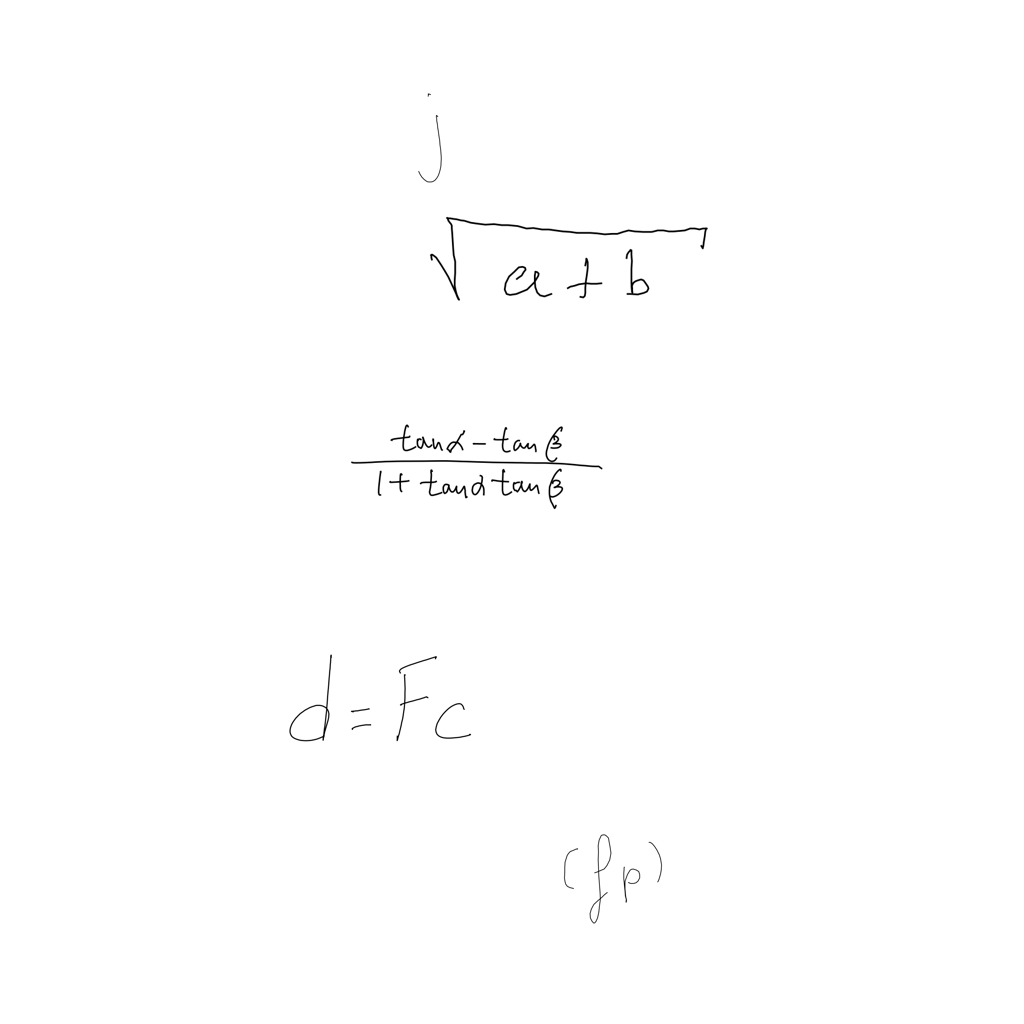 j
\sqrt{a+b}
\frac{\tan\alpha-\tan\beta}{1+\tan\alpha\tan\beta}
d=Fc
(fp)